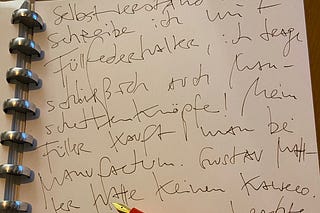 Selbstverständ
schreibe ich mit
Füllfederhalter, ich trage
schließlich auch Man-
schettenknöpfe! Mein
Füller kauft man bei
Manufactum. Gustav Mah-
ler hatte keinen Kaweco.